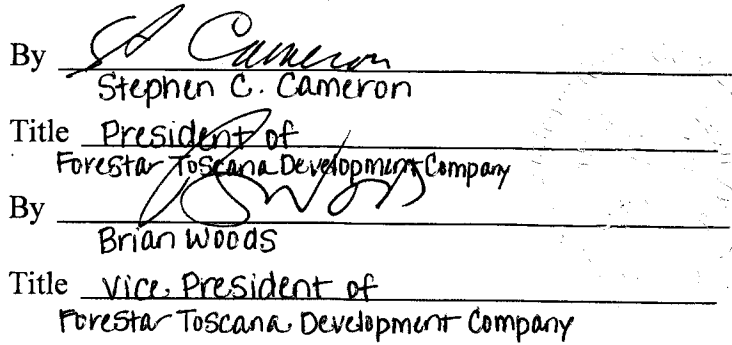 By SC Cameron
Stephen C. Cameron
Title President of
Forestar Toscana Development Company
By B Woods
Brian Woods
Title Vice President of
Forestar Toscana Development Company